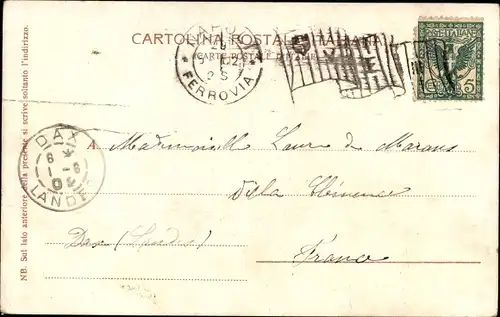 CARTOLINA POSTALE ITALIANA
(CARTE POSTALE D'ITALIE)
FERROVIA
POSTE ITALIANE
5
DAX
LANDES
A Mademoiselle Laure de Marans
Villa
Dax (Landes)
France
NB. Sul lato anteriore della presente si scrive soltanto l'indirizzo.